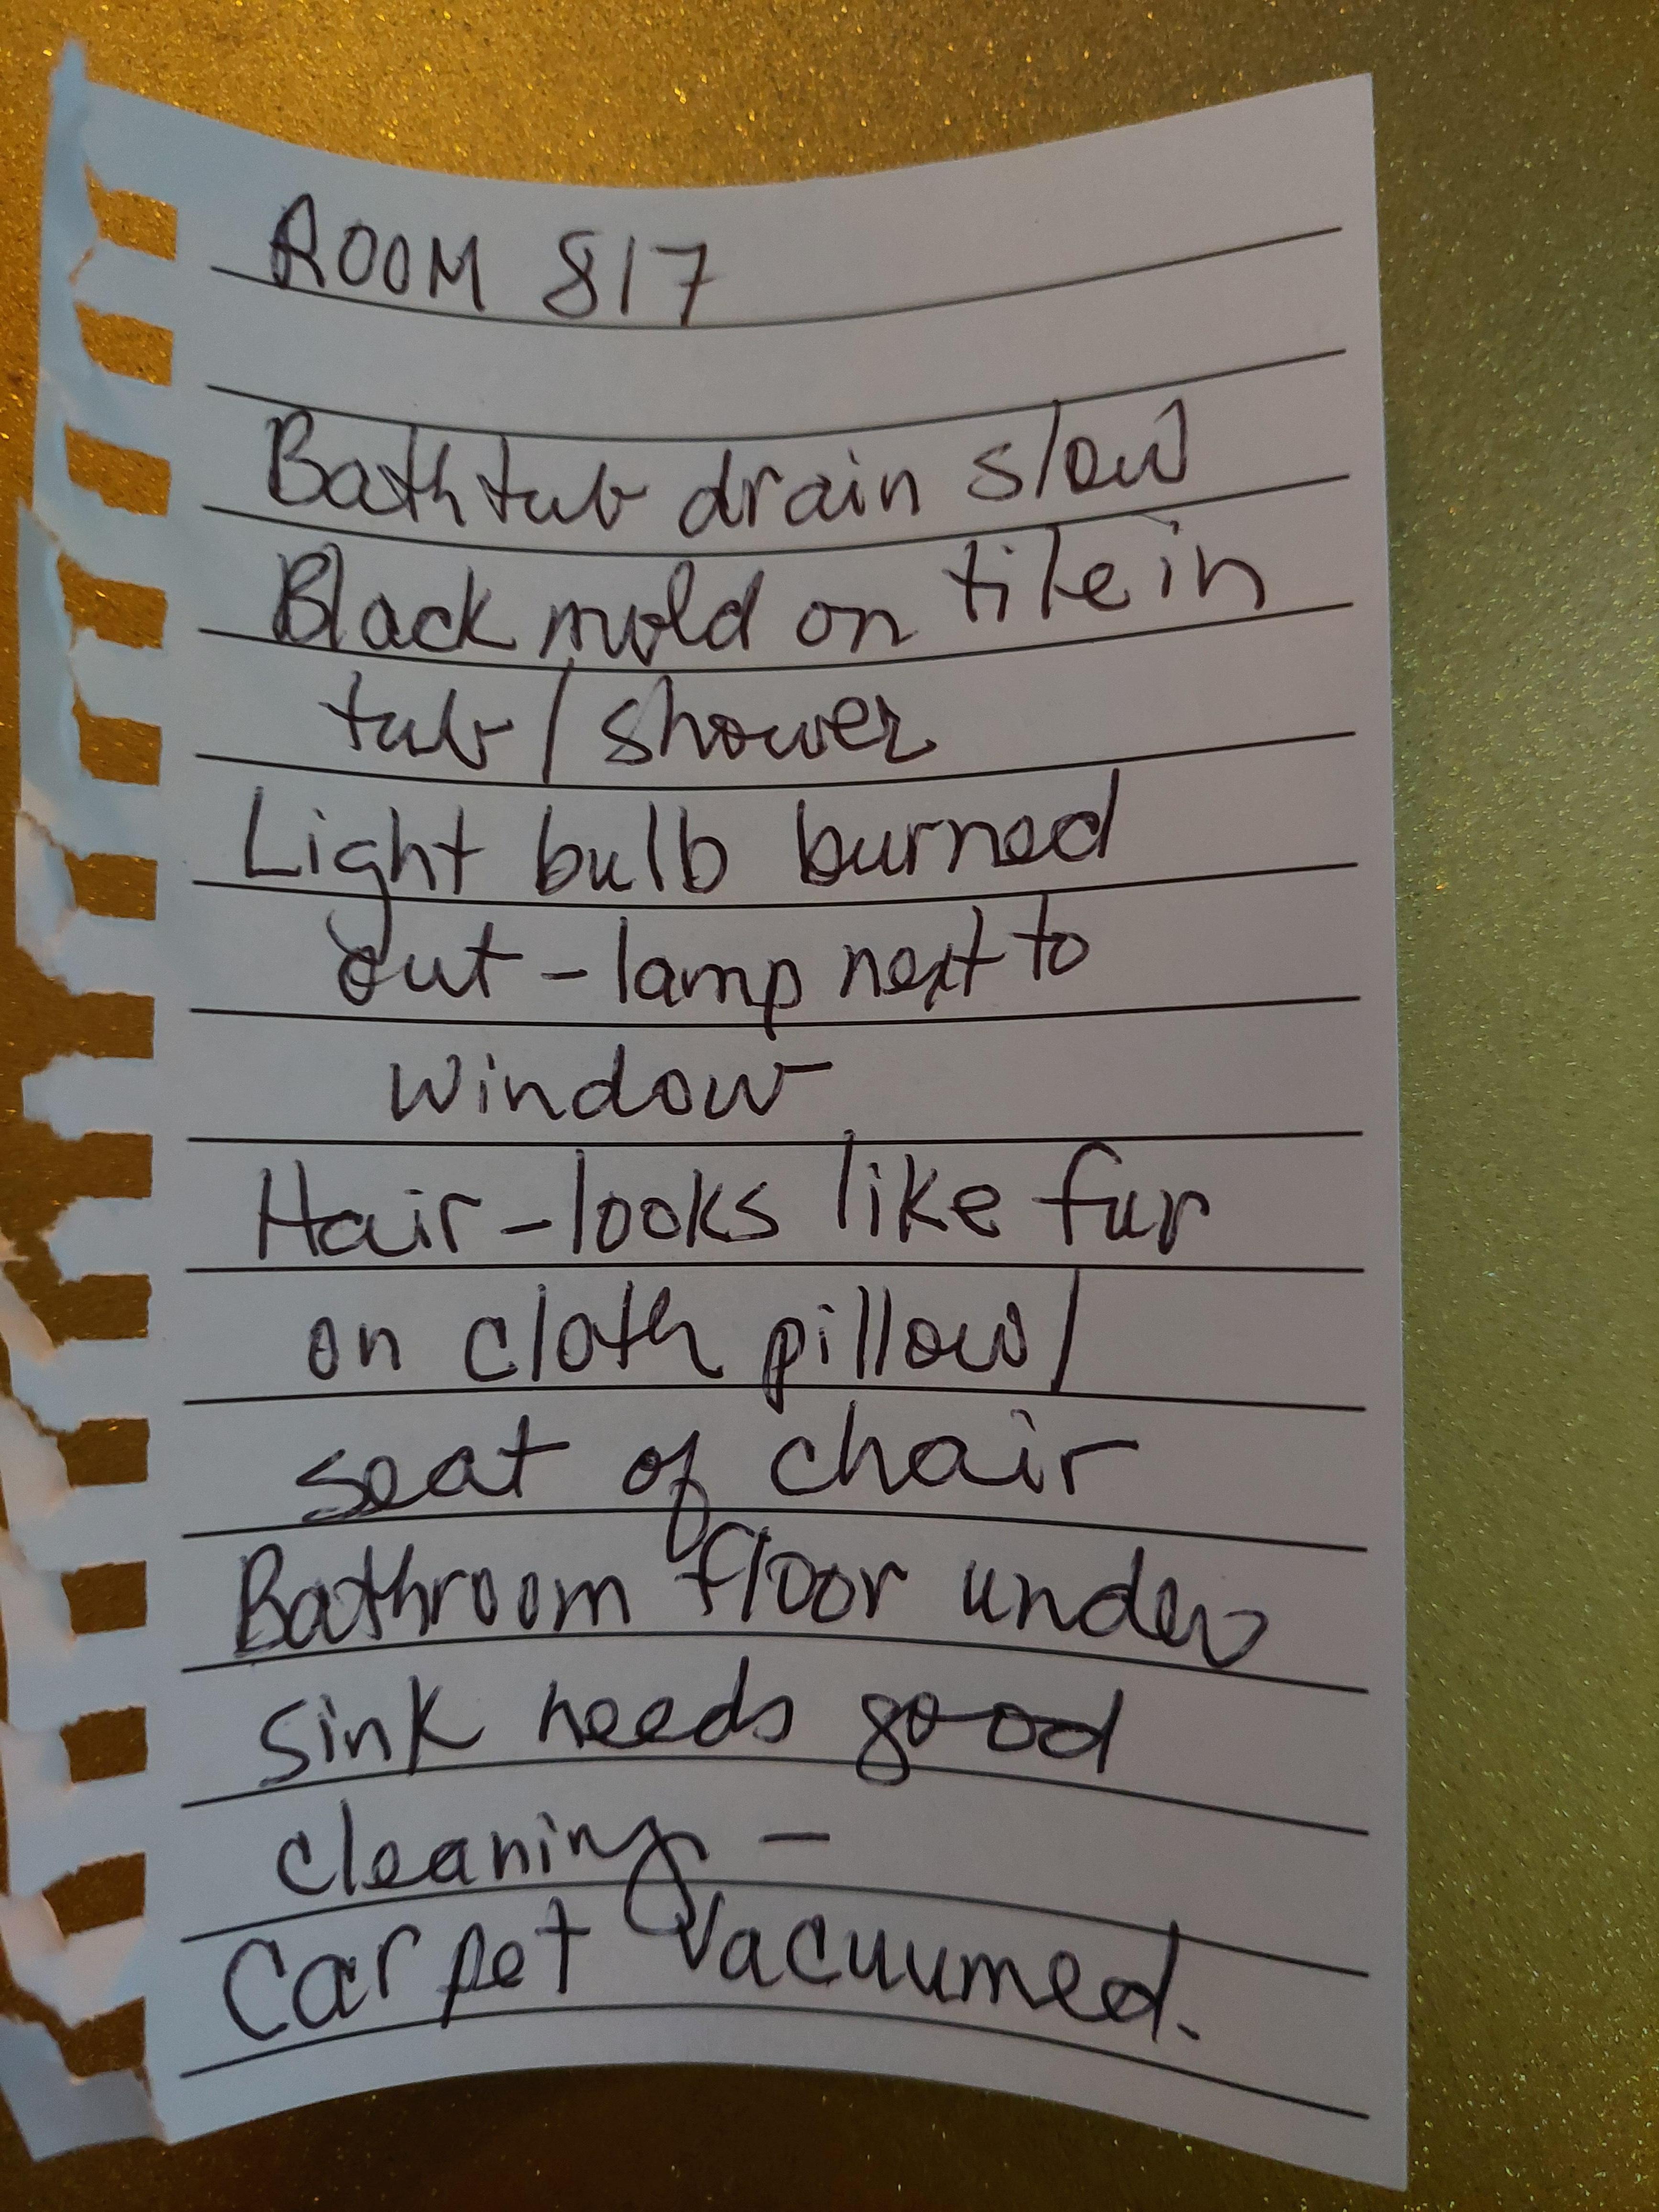 ROOM 817
Bathtub drain slow
Black mold on tile in
tub / shower
Light bulb burned
out - lamp next to
window
Hair - looks like fur
on cloth pillow /
seat of chair
Bathroom floor under
sink needs good
cleaning -
Carpet vacuumed.